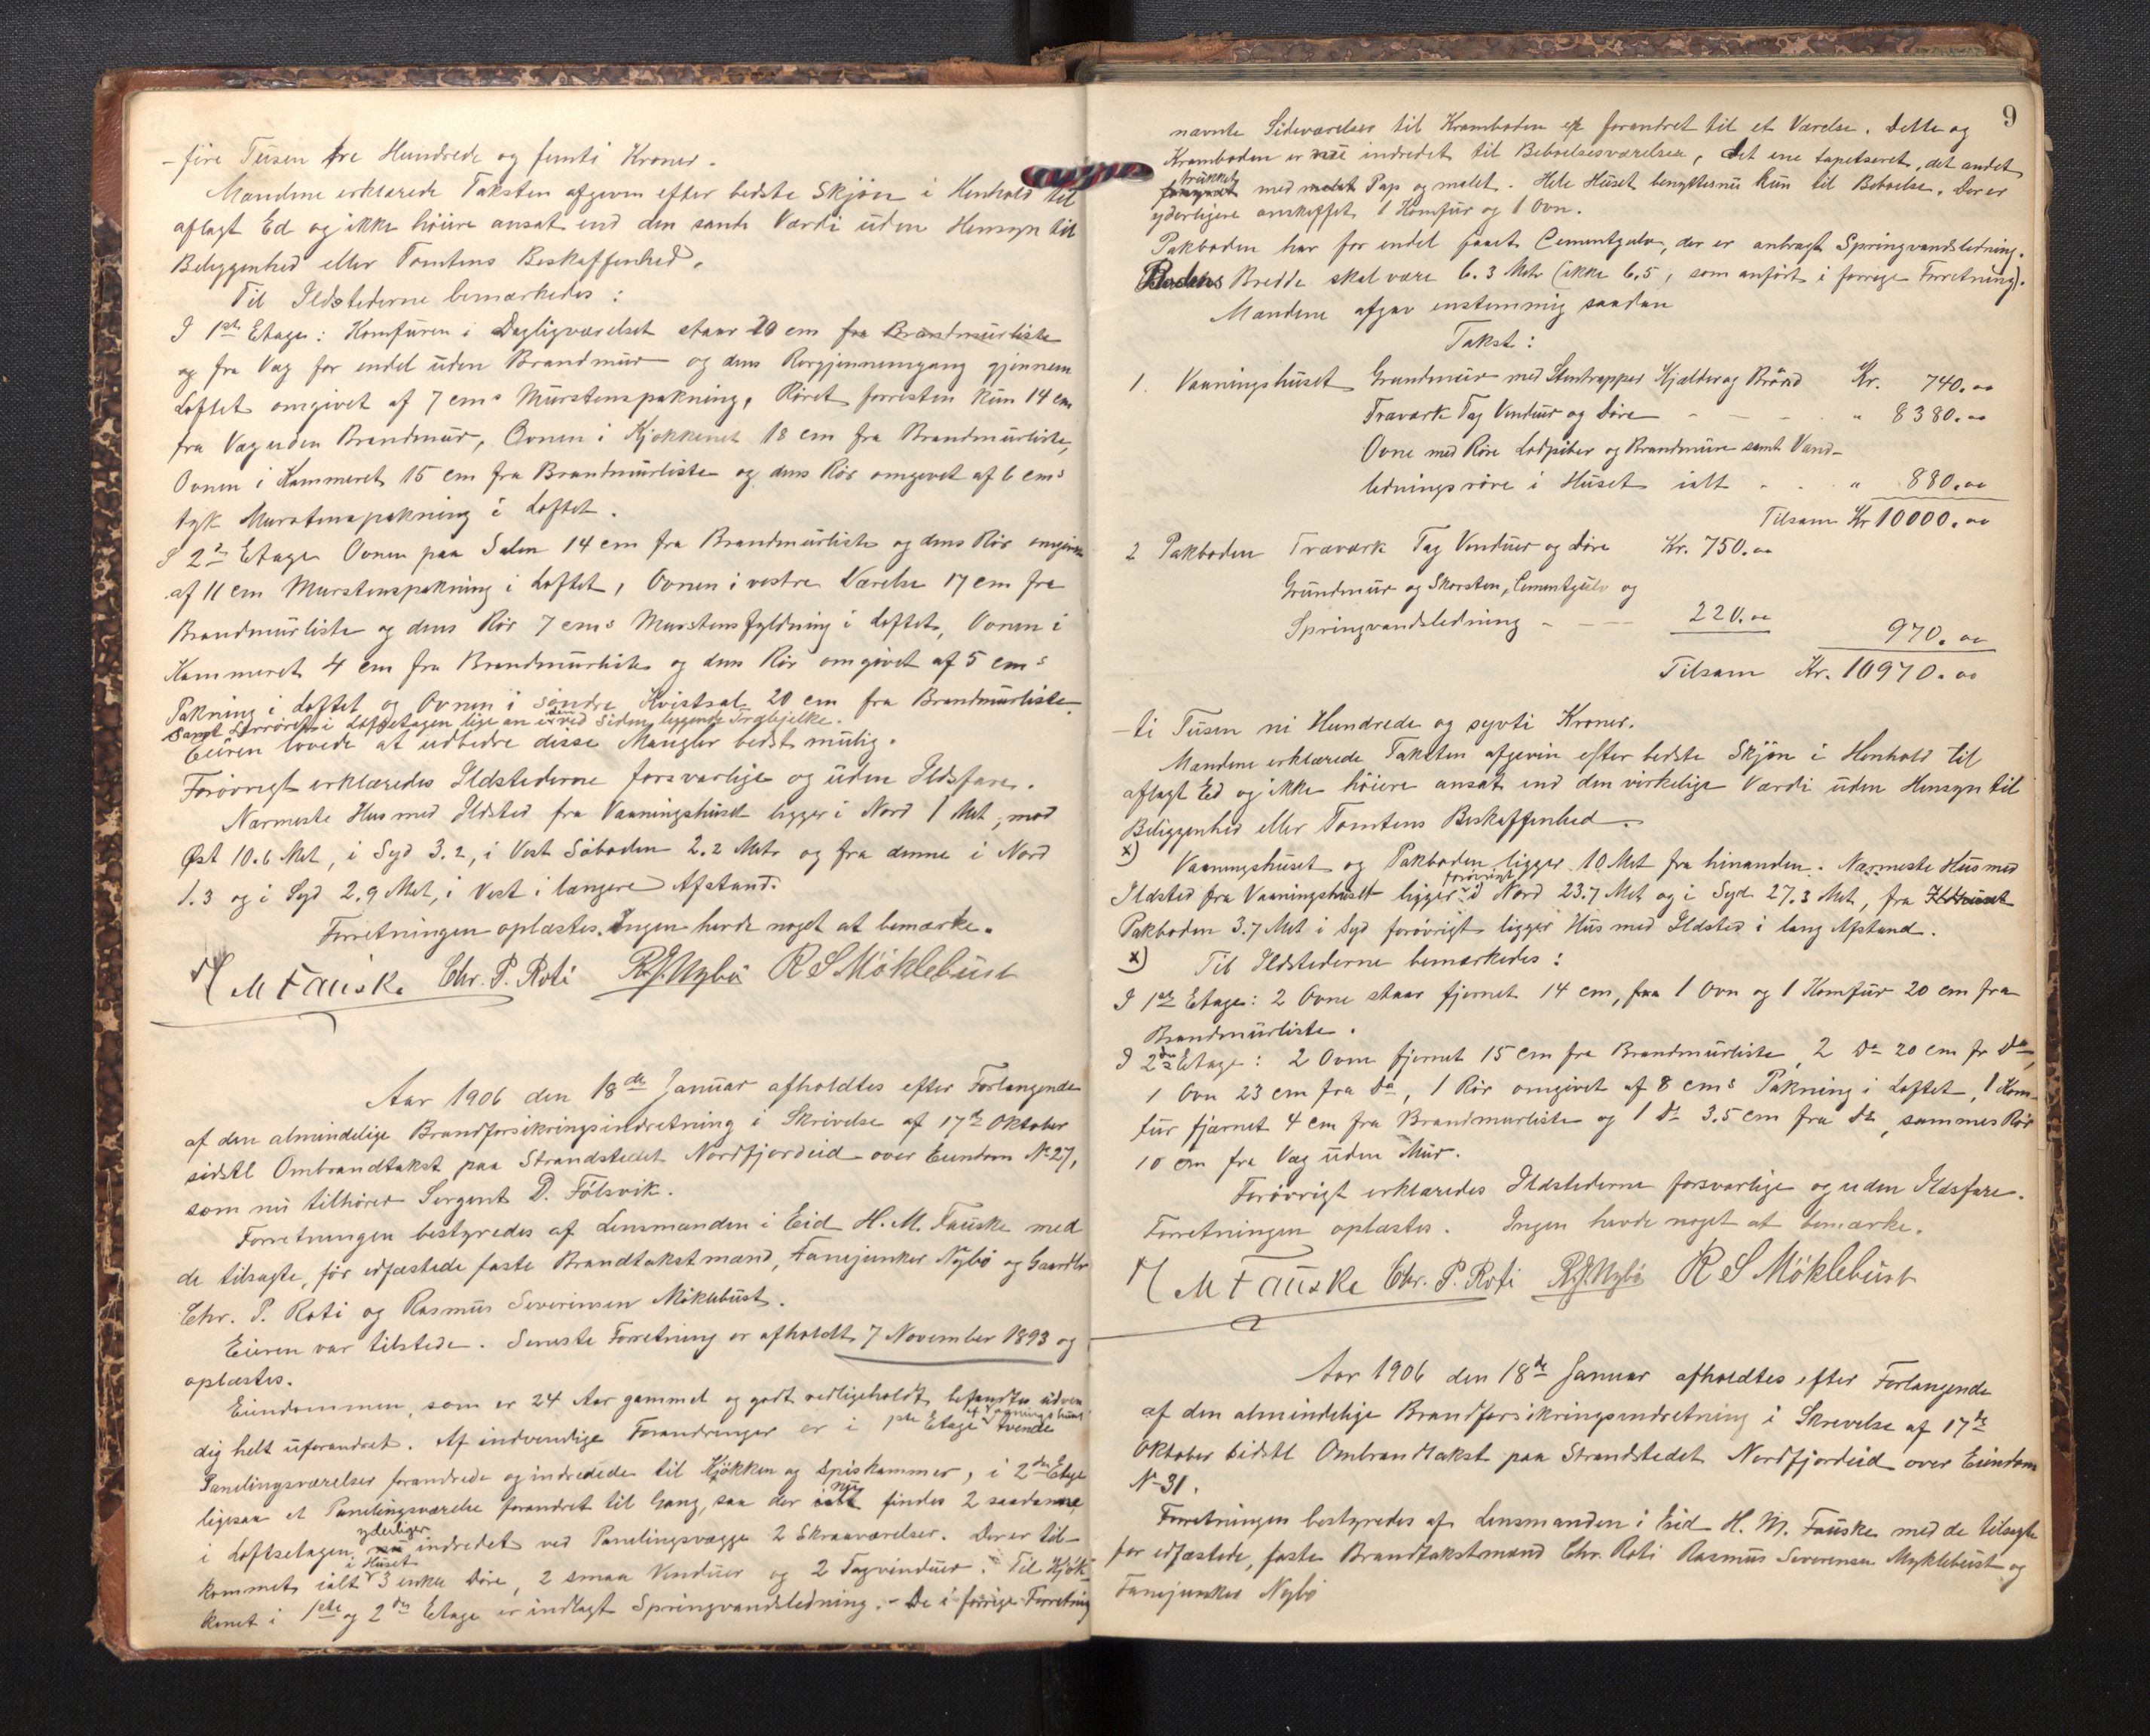 - fire Tusen tre Hundrede og femti Kroner.
Mændene erklærede Taksten afgiven efter bedste Skjøn i Henhold til
aflagt Ed og ikke høiere ansat end den sande Værdi uden Hensyn til
Beliggenhed eller Tomtens Beskaffenhed.
Til Ildstederne bemærkedes:
I 1ste Etage: Komfuren i Dagligværelset staar 20 cm fra Brandmurliste
og fra Væg for endel uden Brandmur og dens Rørgjennemgang gjennem
Loftet omgivet af 7 cms Murstenspakning, Røret forresten kun 14 cm
fra Væg uden Brandmur, Ovnen i Kjøkkenet 18 cm fra Brandmurliste,
Ovnen i Kammeret 15 cm fra Brandmurliste og dens Rør omgivet af 6 cms
tyk Murstenspakning i Loftet.
I 2n Etage Ovnen paa Salen 14 cm fra Brandmurliste og dens Rør omgivet
af 11 cm Murstenspakning i Loftet, Ovnen i vestre Værelse 17 cm fra
Brandmurliste og dens Rør 7 cms Murstensfyldning i Loftet, Ovnen i
Kammeret 4 cm fra Brandmurliste og dens Rør omgivet af 5 cms
Pakning i Loftet og Ovnen i søndre Kvistsal 20 cm fra Brandmurliste
samt i Loftsetagen lige an en ved Siden liggende Træbjelke.
Eieren lovede at udbedre disse Mangler bedst mulig.
Forøvrigt erklæredes Ildstederne forsvarlige og uden Ildsfare.
Nærmeste Hus med Ildsted fra Vaaningshuset ligger i Nord 1 Met, mod
Øst 10.6 Met, i Syd 3.2, i Vest Søboden 2.2 Metr og fra denne i Nord
1.3 og i Syd 2.9 Met, i Vest i længere Afstand.
Forretningen oplæstes. Ingen havde noget at bemærke.
H M Fauske Chr. P. Roti R. J. Nybø R S Møklebust
Aar 1906 den 18de Januar afholdtes efter Forlangende
af den almindelige Brandforsikringsindretning i Skrivelse af 17de Oktober
sidstl Ombrandtakst paa Strandstedet Nordfjordeid over Eiendom No 27,
som nu tilhører Sergent D. Følsvik.
Forretningen bestyredes af Lensmanden i Eid H. M. Fauske med
de tilsagte, før edfæstede faste Brandtakstmænd, Fanejunker Nybø og Gaardbr
Chr. P. Roti og Rasmus Severinsen Møklebust.
Eieren var tilstede. Seneste Forretning er afholdt 7 November 1893 og
oplæstes.
Eiendommen, som er 24 Aar gammel og godt vedligeholdt befandtes udven
dig helt uforandret. Af indvendige Forandringer er i 1ste Etage af Vaaningshuset tvende
Panelingsværelser forandrede og indredede til Kjøkken og Spiskammer, i 2den Etage
ligesaa et Panelingsværelse forandret til Gang, saa der nu findes 2 saadanne,
i Loftsetagen yderliger indredet ved Panelingsvægge 2 Skraaværelser. Der er til-
kommet ialt i Huset 3 enkle Døre, 2 smaa Vinduer og 2 Tagvinduer. Til Kjøk-
kenet i 1ste og 2den Etage er indlagt Springvandsledning. - De i forrige Forretning
9
nævnte Sideværelser til Kramboden er forandret til et Værelse. Dette og
Kramboden er nu indredet til Beboelsesværelser, det ene tapetseret, det andet
trukket med Pap og malet. Hele Huset benyttes nu kun til Beboelse. Der er
yderligere anskaffet 1 Komfur og 1 Ovn.
Pakboden har for endel faaet Cementgulv, der er anbragt Springvandsledning.
Bodens Bredde skal være 6.3 Metr (ikke 6.5, som anført i forrige Forretning).
Mændene afgav enstemmig saadan
Takst:
1. Vaaningshuset Grundmur med Stentrapper Kjælder og Brønd Kr. 740.00
Træværk Tag Vinduer og Døre - - - " 8380.00
Ovne med Røre Lodpiber og Brandmure samt Vand-
ledningsrøre i Huset ialt - - " 880.00
Tilsam Kr 10000.00
2 Pakboden Træværk Tag Vinduer og Døre Kr. 750.00
Grundmur og Skorsten, Cementgulv og
Springvandsledning - - - 220.00 970.00
Tilsam Kr. 10970.00
- ti Tusen ni Hundrede og sytti Kroner.
Mændene erklærede Taksten afgiven efter bedste Skjøn i Henhold til
aflagt Ed og ikke høiere ansat end den virkelige Værdi uden Hensyn til
Beliggenhed eller Tomtens Beskaffenhed.
x) Vaaningshuset og Pakboden ligger 10 Met fra hinanden. Nærmeste Hus med
Ildsted fra Vaaningshuset ligger forøvrigt i Nord 23.7 Met og i Syd 27.3 Met, fra
Pakboden 3.7 Met i Syd forøvrigt ligger Hus med Ildsted i lang Afstand.
x) Til Ildstederne bemærkedes:
I 1ste Etage: 2 Ovne staar fjernet 14 cm, 1 Ovn og 1 Komfur 20 cm fra
Brandmurliste.
I 2den Etage: 2 Ovne fjernet 15 cm fra Brandmurliste, 2 Do 20 cm fr Do,
1 Ovn 23 cm fra Do, 1 Rør omgivet af 8 cms Pakning i Loftet, 1 Kom-
fur fjærnet 4 cm fra Brandmurliste og 1 Do 3.5 cm fra Do, sammes Rør
10 cm fra Væg uden Mur.
Forøvrigt erklæredes Ildstederne forsvarlige og uden Ildsfare.
Forretningen oplæstes. Ingen havde noget at bemærke.
H M Fauske Chr. P. Roti R. J. Nybø R S Møklebust
Aar 1906 den 18de Januar afholdtes efter Forlangende
af den almindelige Brandforsikringsindretning i Skrivelse af 17de
Oktober sidstl Ombrandtakst paa Strandstedet Nordfjordeid over Eiendom
No 31.
Forretningen bestyredes af Lensmanden i Eid H. M. Fauske med de tilsagte
før edfæstede, faste Brandtakstmænd Chr. Roti Rasmus Severinsen Myklebust og
Fanejunker Nybø